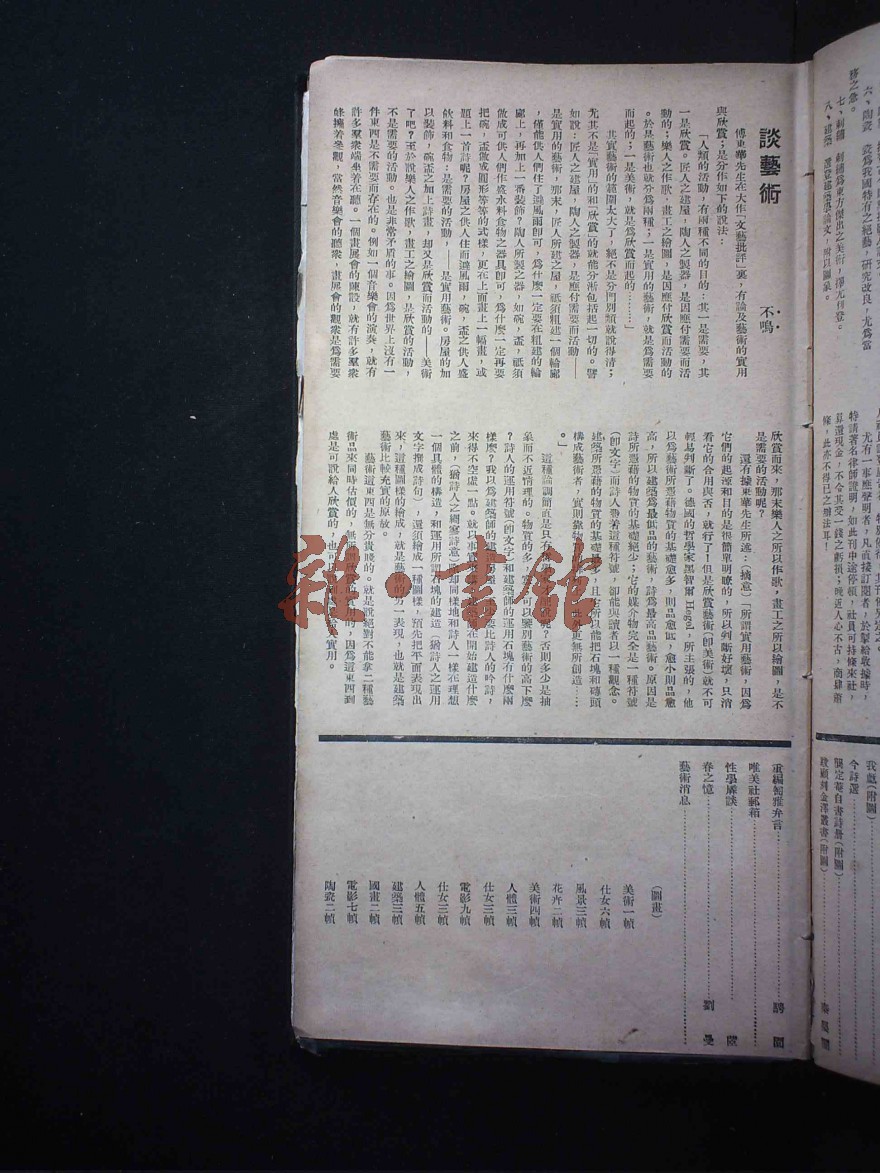 務之意。
六、陶瓷 瓷爲我國特有之絕藝，研究改良，尤爲當
七、刺繡 刺繡爲東方傑出之美術，擇尤刊登。
八、建築 選登建築學論文，附以圖案。
尤有一事應聲明者，凡直接訂閱者，於掣給收據時，
特請著名律師證明，如此刊中途停頓，社員可持條來社，
算還現金，不令其受一錢之虧損；晚近人心不古，商肆蕭
條，此亦不得已之辦法耳！
我戲（附圖）
今詩選
龔定菴自書詩册（附圖）
談藝術
不鳴
傅東華先生在大作「文藝批評」裏，有論及藝術的實用
與欣賞；是分作如下的說法：
「人類的活動，有兩種不同的目的：其一是需要，其
一是欣賞。匠人之建屋，陶人之製器，是因應付需要而活
動的；樂人之作歌，畫工之繪圖，是因應付欣賞而活動的
。於是藝術也就分爲兩種；一是實用的藝術，就是爲需要
而起的；一是美術，就是爲欣賞而起的………」
其實藝術的範圍太大了，絕不是分門別類就說得清；
尤其不是『實用』的和『欣賞』的就能分淅包括起一切的。譬
如說：匠人之建屋，陶人之製器，是應付需要而活動——
是實用的藝術，那末，匠人所建之屋，祗須粗建一個輪廓
，僅能供人們住了避風雨卽可，爲什麼一定要在粗建的輪
廓上，再加上一番裝飾？陶人所製之器，如碗，盃，祗須
做成可供人們作盛水料食物之器具卽可，爲什麼一定再要
把碗，盃做成圓形等等的式樣，更在上而畫上一幅畫，或
題上一首詩呢？房屋之供人住而避風雨，碗，盃之供人盛
飲料和食物：是需要的活動，——是實用藝術。房屋的加
以裝飾，碗盃之加上詩畫，却又是欣賞而活動的——美術
了吧？至於說樂人之作歌，畫工之繪圖，是欣賞的活動，
不是需要的活動。也是非常矛盾的事。因爲世界上沒有一
件東西是不需要而存在的。例如一個音樂會的演奏，就有
許多羣衆端坐着在聽。一個畫展會的陳設，就有許多羣衆
蜂擁着參觀，當然音樂會的聽衆，畫展會的觀衆是爲需要
欣賞而來，那末樂人之所以作歌，畫工之所以繪圖，是不
是需要的活動呢？
還有據東華先生所述：（摘意）「所謂實用藝術，因爲
它們的起源和目的是很簡單明瞭的，所以判斷好壞，只消
看它的合用與否，就行了！但是欣賞藝術（卽美術）就不可
輕易判斷了。德國的哲學家黑智爾 Hegel，所主張的，他
以爲藝術所憑藉的物質的基礎愈多，則品愈低，愈小則品愈
高，所以建築爲最低品的藝術，詩爲最高品藝術。原因是
詩所憑藉的物質的基礎絕少；它的媒介物完全是一種符號
（卽文字）而詩人帶着這種符號，卻能與讀者以一種觀念。
建築所憑藉的物質的基礎最多，且它所以能把石塊和磚頭
構成藝術者，實則靠物質之力，此外更無所創造……
。」
這種論調簡直是只有
象而不近情理的。物質的多，寡，可以鑒別藝術的高下麼
？詩人的運用符號（卽文字）和建築師的運用石塊有什麼兩
樣麼？我以爲建築師的建造房屋，要比詩人的吟詩，
來得不空虛一點。就以事實來講，建築師在開始建造什麼
之前，（猶詩人之構窩詩意）却同樣地和詩人一樣在理想
一個具體的構造，和運用所謂石塊的建造（猶詩人之運用
文字推成詩句），還須繪成一種圖樣，預先把平面表現出
來，這種圖樣的繪成，就是藝術的另一表現，也就是建築
藝術比較充實的原故。
藝術這東西是無分貴賤的。就是說絕對不能拿二種藝
術品來同時估價的，無所謂欣賞的實用的，因爲這東西到
處是可說給人欣賞的，也可以說給人實用。
重編劍雅弁言
唯美社郵箱
性學屑談
春之憶………劉曼
藝術消息
（圖畫）
美術一幀
仕女六幀
風景三幀
花卉二幀
美術四幀
人體三幀
仕女三幀
電影九幀
仕女三幀
人體五幀
建築三幀
國畫二幀
電影七幀
陶瓷二幀
雜·書館